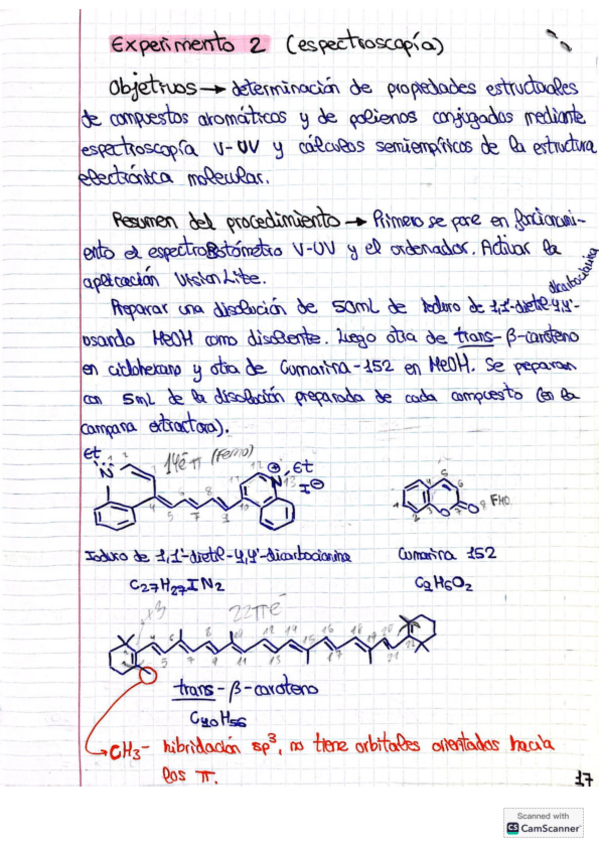 Experimento 2 (espectroscopía)
Objetivos → determinación de propiedades estructurales
de compuestos aromáticos y de polienos conjugados mediante
espectroscopía V-UV y cálculos semiempíricos de la estructura
electrónica molecular.
Resumen del procedimiento → Primero se pone en funcionami-
ento el espectrofotómetro V-UV y el ordenador. Activar la
aplicación VisionLite.
Preparar una disolución de 50mL de Ioduro de 1,1'-dietil-4,4'-
dicarbocianina
usando MeOH como disolvente. Luego otra de trans-β-caroteno
en ciclohexano y otra de Cumarina-152 en MeOH. Se preparan
con 5mL de la disolución preparada de cada compuesto (en la
campana extractora).
et
N
14e⁻π (Ferro)
⊕ Et
N
I⊖
O
O
Ioduro de 1,1'-dietil-4,4'-dicarbocianina
Cumarina 152
C27H27IN2
C9H6O2
x3
22πe⁻
trans-β-caroteno
C40H56
CH3- hibridación sp³, no tiene orbitales orientados hacia
los π.
17
Scanned with
CS CamScanner